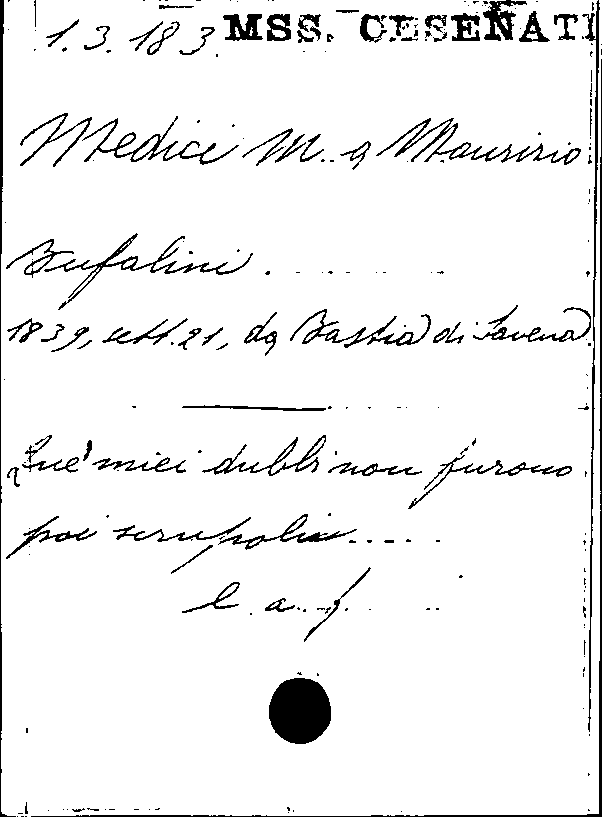 1.3.183 MSS. CESENATI
Medici M. a Maurizio
Bufalini.
1839, sett. 21, da Bastia di Savena
Que' miei dubbi non furono
poi scrupoli.....
l. a. f.